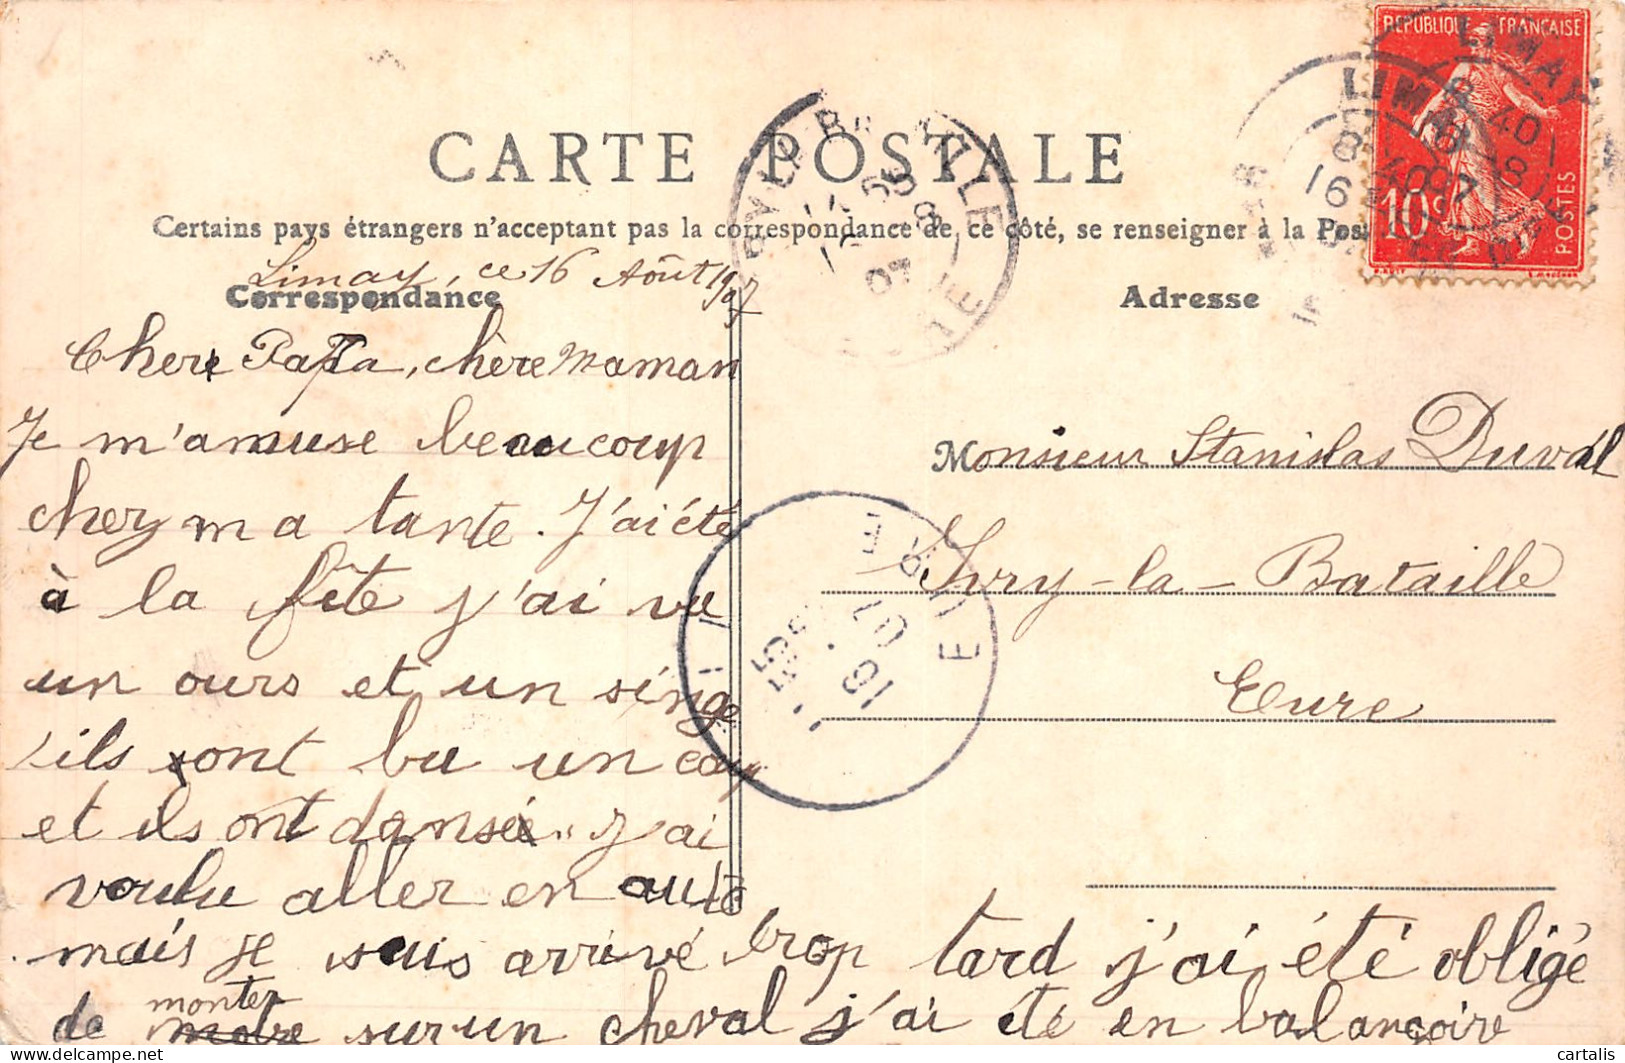 RÉPUBLIQUE FRANÇAISE
10c
POSTES
LIMAY
LIMAY
8 40
16
CARTE POSTALE
Certains pays étrangers n'acceptant pas la correspondance de ce côté, se renseigner à la Pos
Limay, ce 16 Août 1907
Correspondance
Adresse
Cher Papa, chère Maman
Je m'amuse beaucoup
chez ma tante. J'ai été
à la fête j'ai vu
un ours et un singe
ils ont bu un coup
et ils ont dansé j'ai
voulu aller en auto
mais je suis arrivé trop tard j'ai été obligé
de monter sur un cheval j'ai été en balançoire
Monsieur Stanislas Duval
Ivry-la-Bataille
Eure
EURE
16 07
cartalis